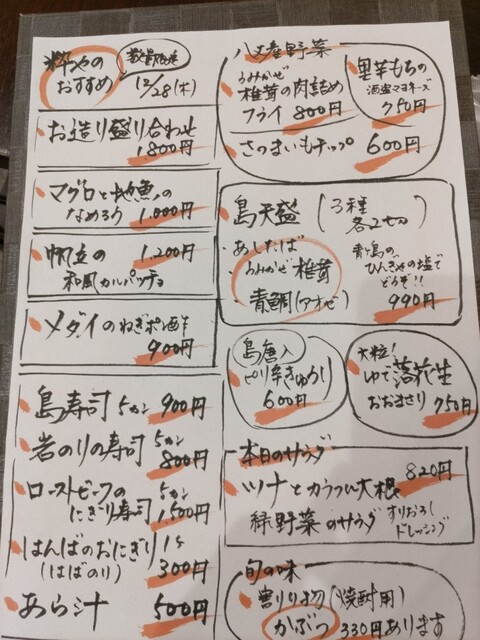 おすすめ
12/28(木)
お造り盛り合わせ
1.800円
マグロと地魚の
なめろう 1.000円
帆立の 1.200円
和風カルパッチョ
メダイのねぎポン酢
900円
島寿司 5カン 900円
岩のりの寿司 5カン
800円
ローストビーフの 5カン
にぎり寿司 1,500円
はんばのおにぎり 1ヶ
(はばのり) 300円
あら汁 500円
八丈産野菜
うみかぜ
椎茸の肉詰め
フライ 800円
里芋もちの
酒盗マヨネーズ
750円
さつまいもチップ 600円
島天盛 (3種
各2切)
・あしたば
・うみかぜ椎茸
・青鯛(アオゼ)
青ヶ島の
ひんぎゃの塩で
どうぞ!!
990円
島唐入
ピリ辛きゅうり
600円
大粒!
ゆで落花生
おおまさり 750円
本日のサラダ
820円
ツナとカラフル大根
緑野菜のサラダ
すりおろし
ドレッシング
旬の味
割り物 (焼酎用)
かぶつ 330円あります